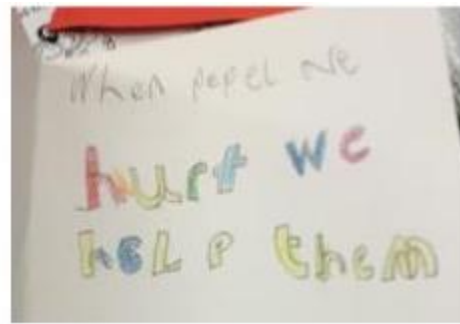 When pepel are
hurt we
help them